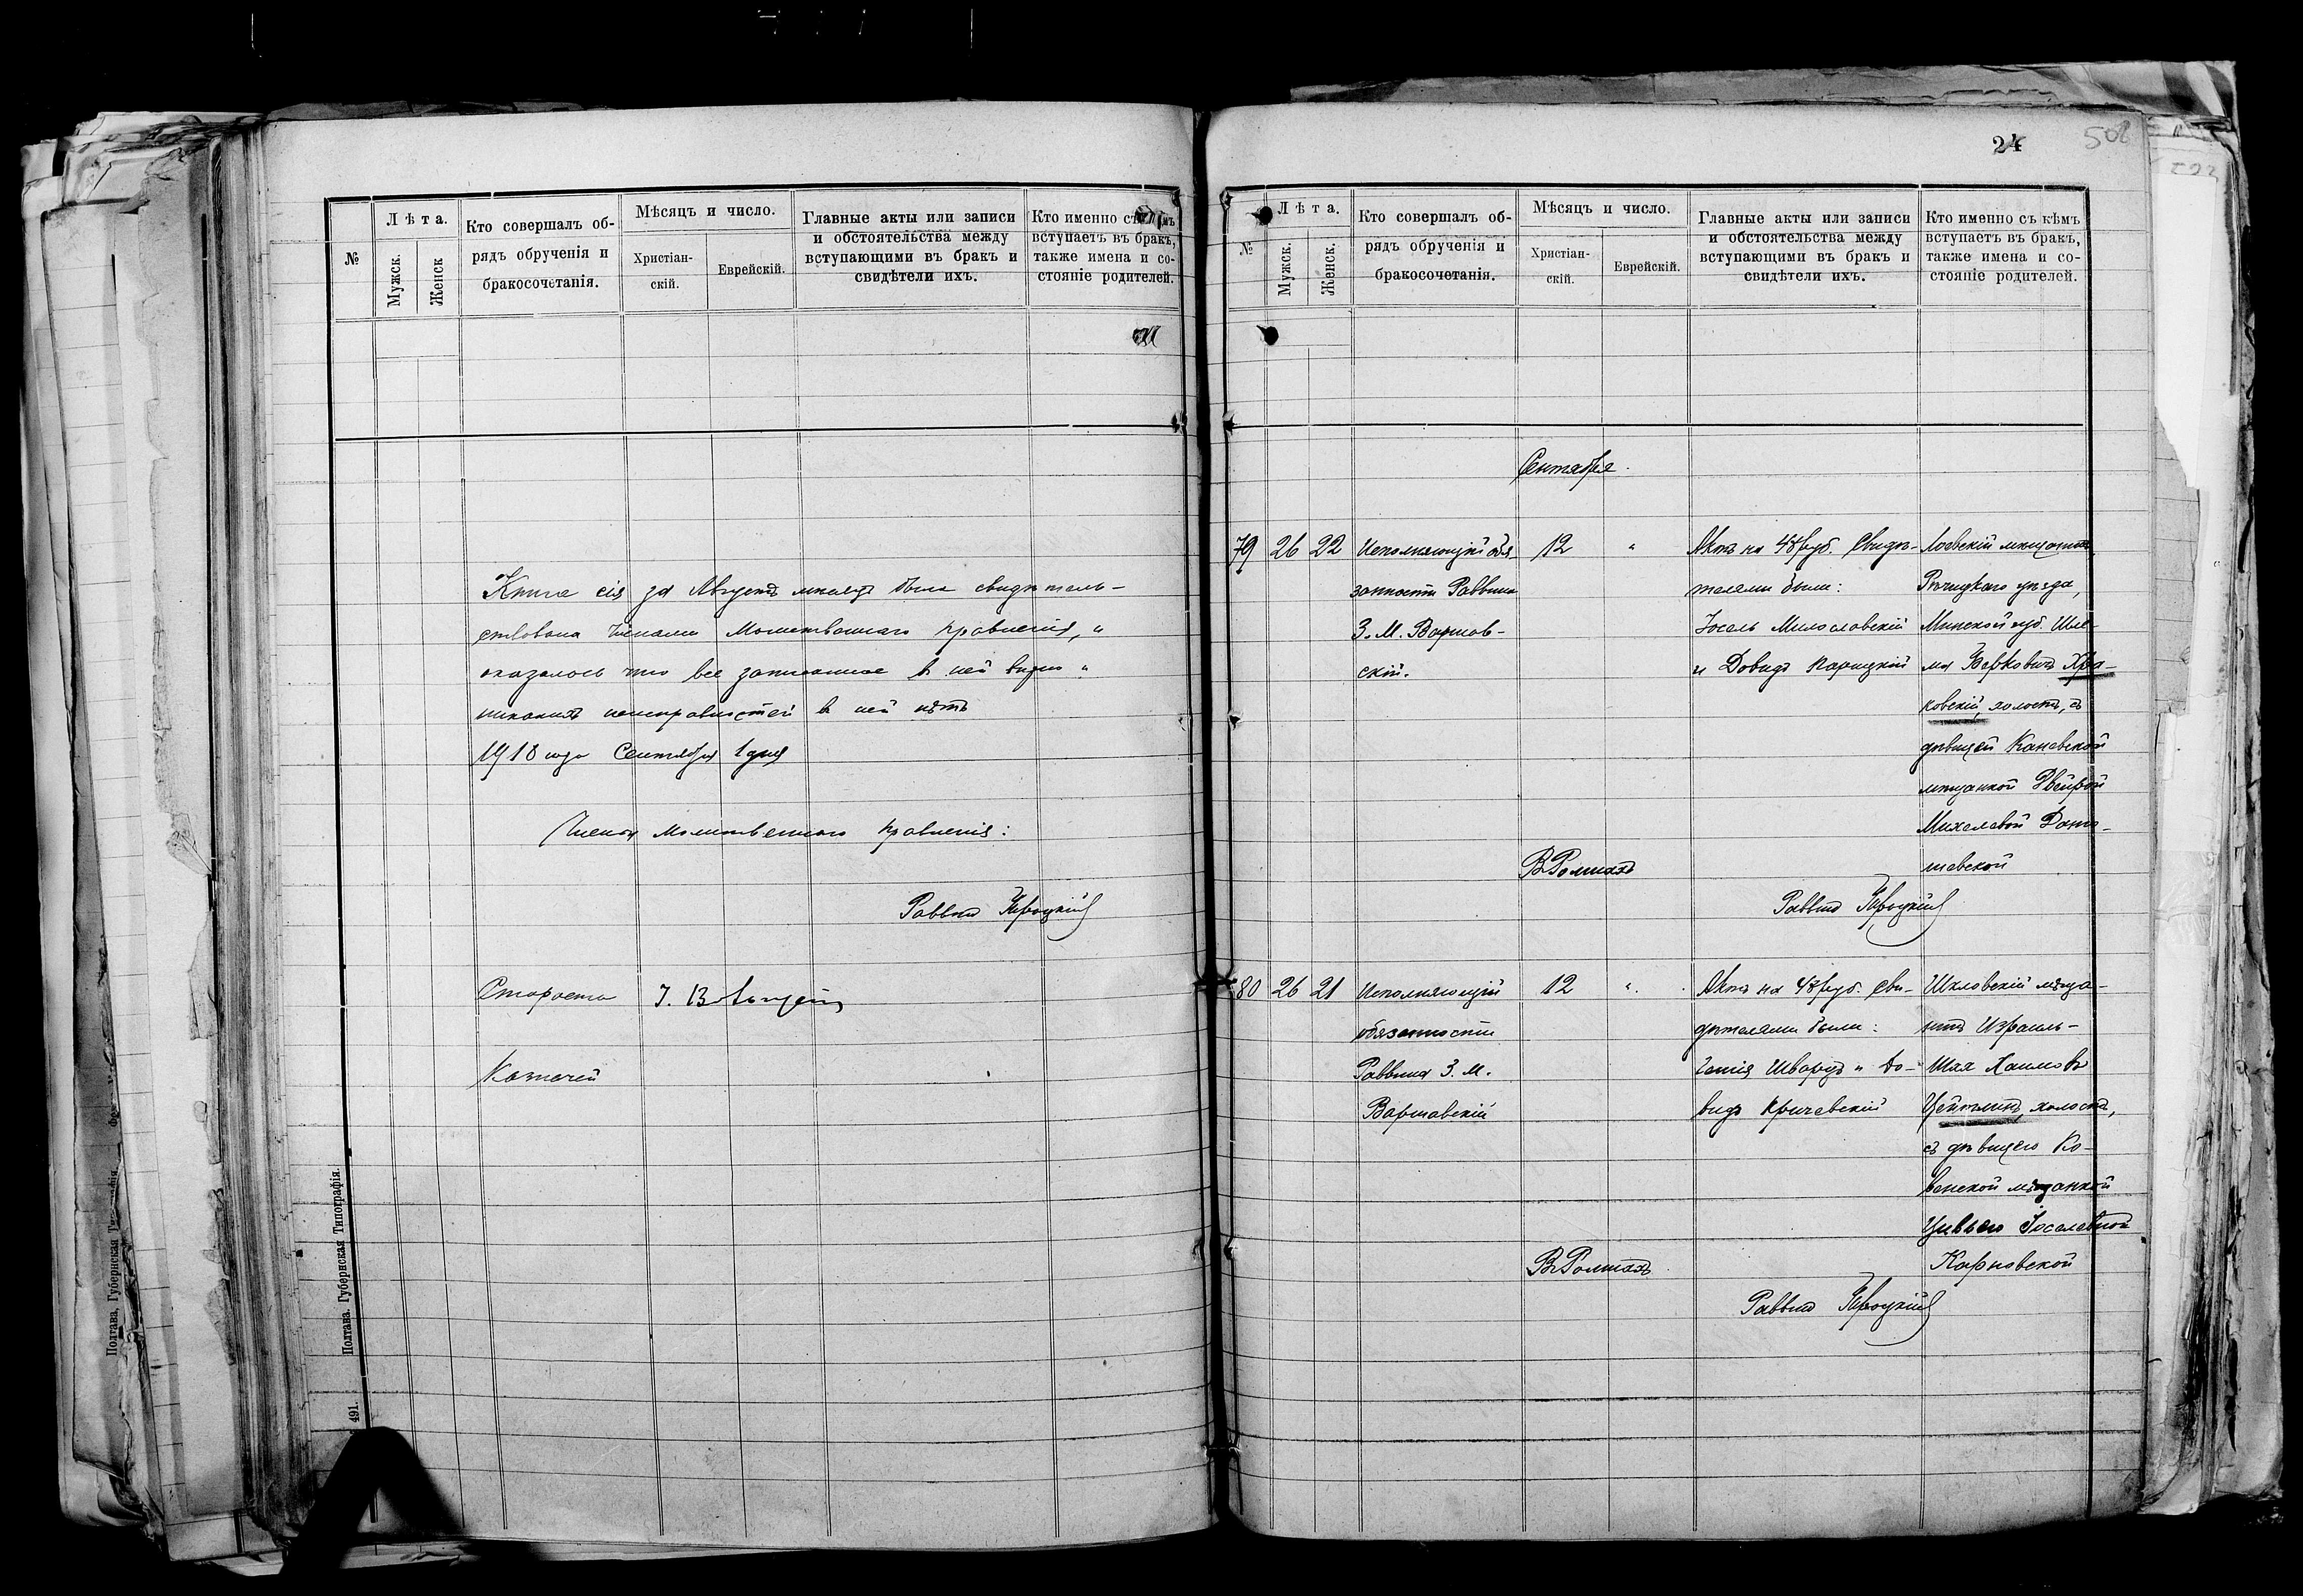 №
Лѣта.
Мужск.
Женск
Кто совершалъ об-
рядъ обрученія и
бракосочетанія.
Мѣсяцъ и число.
Христіан-
скій.
Еврейскій.
Главные акты или записи
и обстоятельства между
вступающими въ бракъ и
свидѣтели ихъ.
Кто именно съ
вступаетъ въ бракъ,
также имена и со-
стояніе родителей.
Книга сія за Августъ мѣсяцъ была свидѣтель-
ствована Членами Молитвеннаго правленія, и
оказалось что все записанное в ней вѣрно и
никакихъ неисправностей в ней нѣтъ
1918 года Сентября 1 дня
Члены Молитвеннаго правленія:
Раввинъ
Староста
Казначей
Полтава. Губернская Типографія.
491.
Полтава, Губернская
24
502
№
Лѣта.
Мужск.
Женск.
Кто совершалъ об-
рядъ обрученія и
бракосочетанія.
Мѣсяцъ и число.
Христіан-
скій.
Еврейскій.
Главные акты или записи
и обстоятельства между
вступающими въ бракъ и
свидѣтели ихъ.
Кто именно съ кѣмъ
вступаетъ въ бракъ,
также имена и со-
стояніе родителей.
Сентября.
79 26 22 Исполняющій обя
занности Раввина
З. М. Варшав-
скій.
12 "
Актъ на 48 руб. Свидѣ-
телями были:
Іосель Милославскій
и Довидъ Карицкій
Лоевскій мѣщанинъ
Рѣчицкаго уѣзда,
Минской губ. Шле-
ма Берковичъ Хра-
ковскій, холостъ, съ
дѣвицей Каневской
мѣщанкой Двейрой
Михелевой
шевской
В Ролтахъ
Раввинъ
80 26 21 Исполняющій
обязанности
Раввина З. М.
Варшавскій
12 "
Актъ на 48 руб. Сви-
дѣтелями были:
Шварцъ и До-
видъ Кричевскій
Шкловскій мѣща-
нинъ Израиль-
Шая Хаимовъ
Цейтлинъ, холостъ,
съ дѣвицею Ко-
венской мѣщанкой
Цивьею Іоселевной
Карновской
В Ролтахъ
Раввинъ